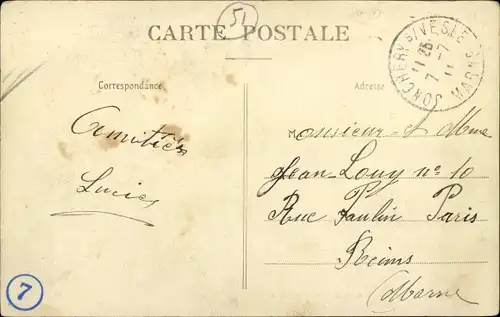 51
CARTE POSTALE
JONCHERY S/VESLE
11 25
7 -7
11
MARNE
Correspondance
Adresse
Amitiés
Lucie
Monsieur et Mme
Jean-Louy nº 10
Rue Paulin Paris
Reims
(Marne
7